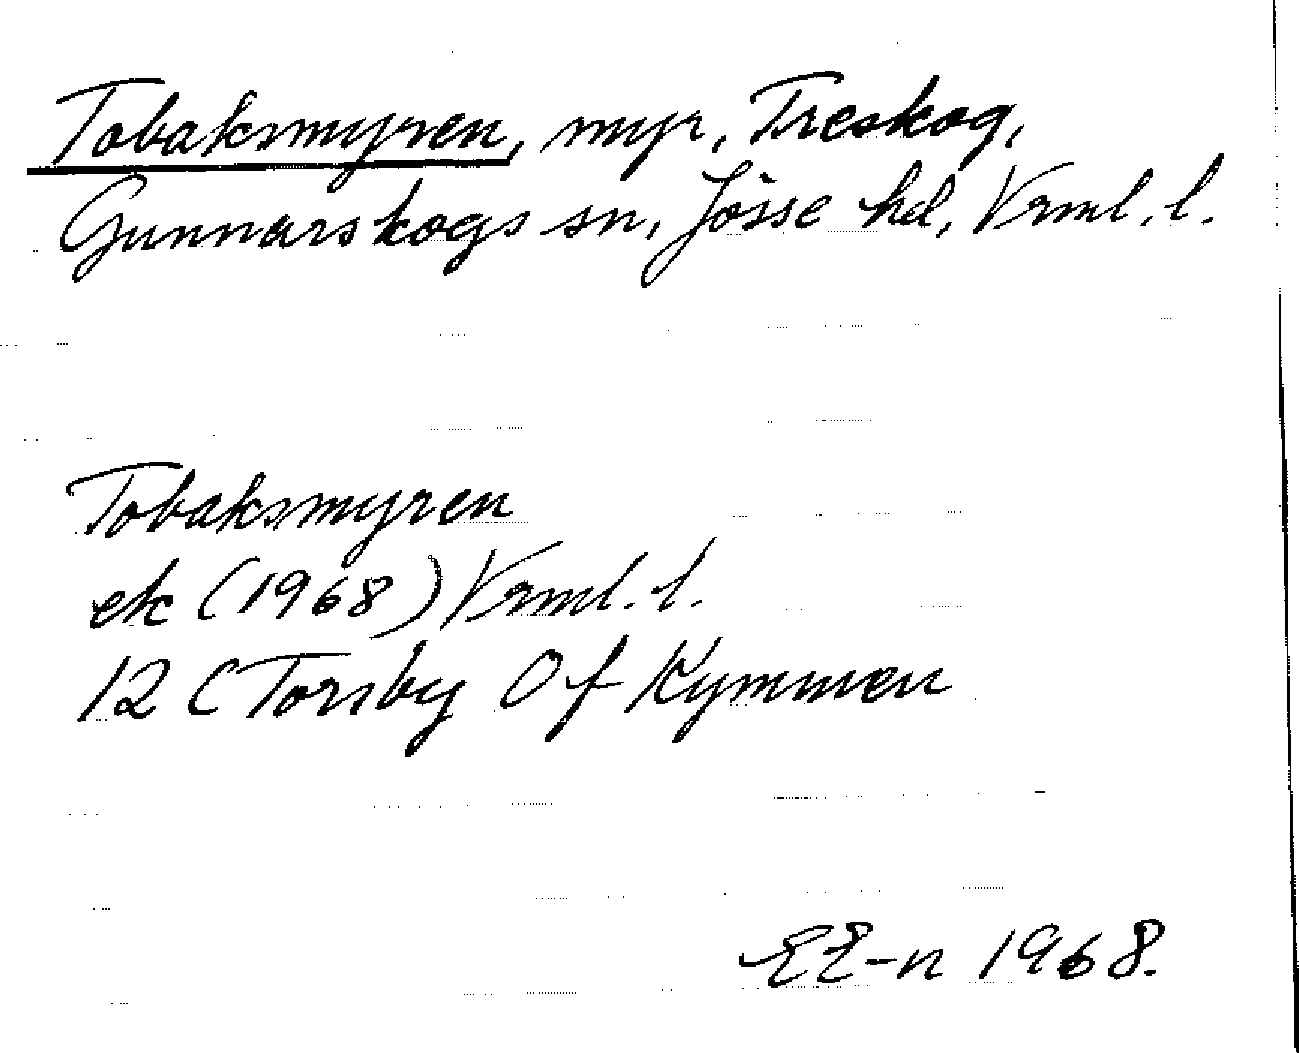 Tobaksmyren, myr, Treskog,
Gunnarskogs sn, Jösse hd, Vrml. l.
Tobaksmyren
ek (1968) Vrml. l.
12 C Torsby 0 f Kymmen
EE-n 1968.